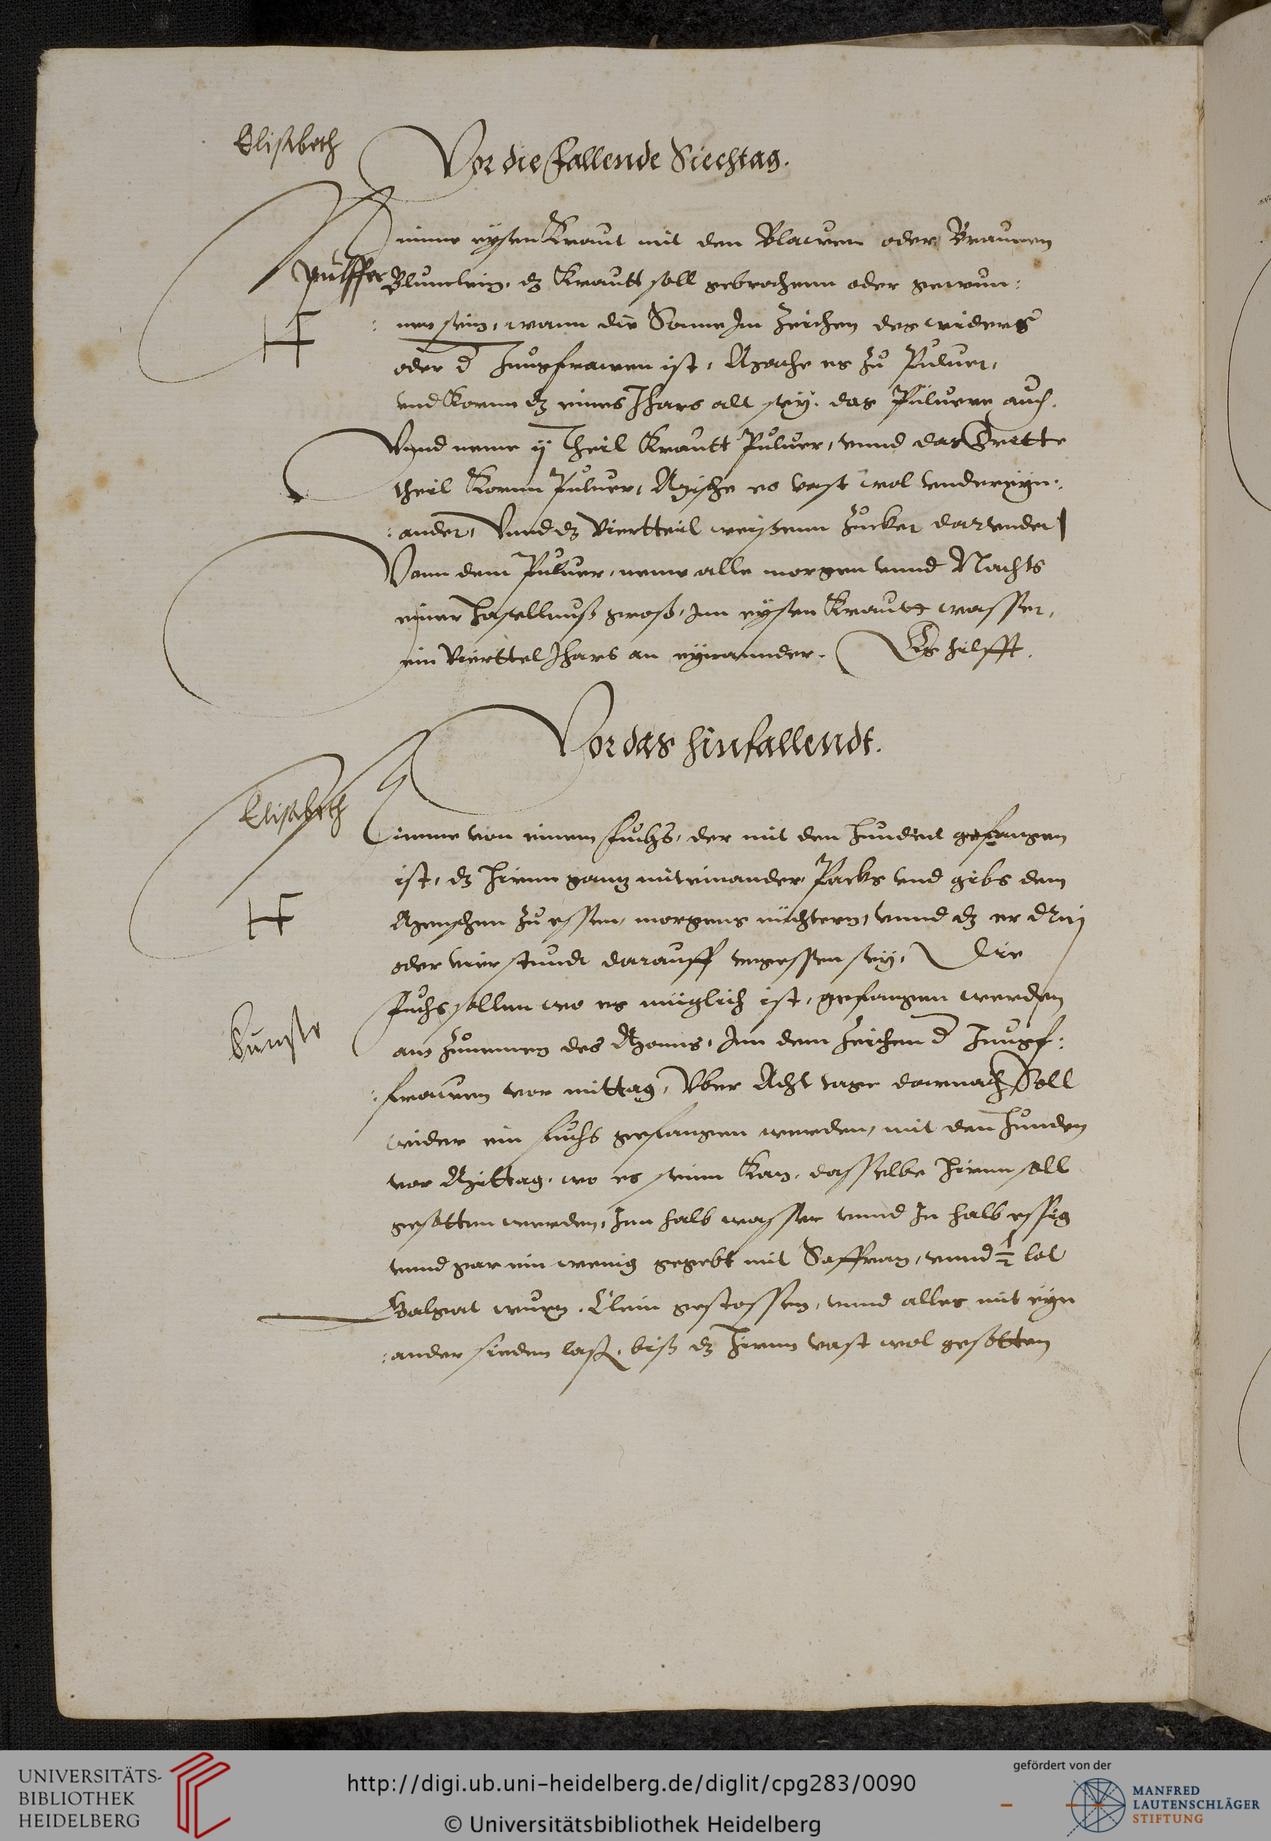 Elisabeth
Vor die fallende Siechtag.
Nimme eysen Kraut mit den Blawen oder Braunen
pulffer
Blumlein, dz Krautt soll gebrochenn oder gewun¬
nen sein, wann die Sonne Im Zeichen des widers
oder d Jungfrawen ist, Mache es zu Puluer,
vnd Kornn dz eines Jhars alt sey, das Puluere auch.
Vnnd neme ij Theil Krautt Puluer, vnnd das Dritte
theil Kornn Puluer, Mische es vast wol vndereyn¬
ander, Vnnd dz Viertteil weissenn Zucker darunder
Vonn dem Puluer, neme alle morgen vnnd Nachts
einer Hasellnuß groß, Inn eysen Krautt wasser,
ein Vierttel Jhars an eynannder. Es hilfft.
Vor das hinfallendt.
Elisabeth
Nimme von einem fuchs, der mit den Hunden gefangen
ist, dz Hirnn gantz miteinander, Packs vnd gibs dem
Menschen zu essen, morgens nüchtern, vnnd dz er drei
oder vier stundt darauff vngessen sey, Die
Fuchs sollen wo es müglich ist, gefangen werden
kunste
am Zunemen des Mons, Inn dem Zeichen d Jungf¬
frawen vor mittag, Vber Acht tage darnach Soll
wider ein fuchs gefangen werden, mit den Hunden
vor Mittag, wo es seinn Kan, dasselbe Hirnn soll
gesotten werden, Inn halb wasser vnnd In halb essig
vnnd gar ein wenig gegebt mit Saffran, vnnd ½ lot
Galgat wurtz, Klein gestossen, vnnd alles mit eyn
ander sieden lass, biß dz Hirnn vast wol gesotten
UNIVERSITÄTS-
BIBLIOTHEK
HEIDELBERG
http://digi.ub.uni-heidelberg.de/diglit/cpg283/0090
© Universitätsbibliothek Heidelberg
gefördert von der
MANFRED
LAUTENSCHLÄGER
STIFTUNG